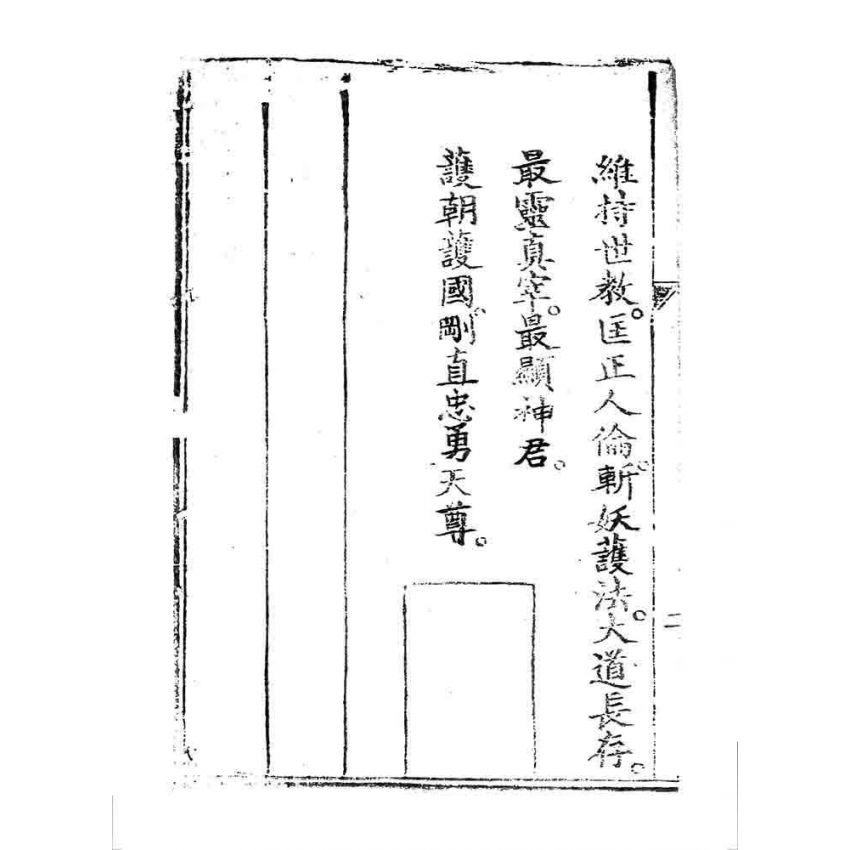 維持世教。匡正人倫。斬妖護法。大道長存。
最靈真宰。最顯神君。
護朝護國。剛直忠勇天尊。
二